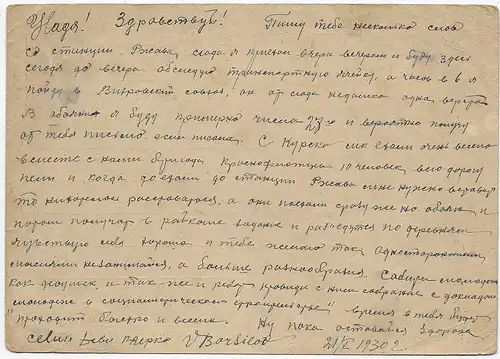 Надя! Здравствуй! Пишу тебе несколько слов
со станции Ржава, сюда я приехал вчера вечером и буду здесь
сегодня до вечера обследую транспортную ячейку, а часов в 6 я
пойду в совхоз, он от сюда недалеко одна верста
В Обоянь я буду примерно числа 27го и вероятно получу
от тебя письмо если писала. С Курска мы ехали очень весело
вместе с нами бригада Краснофлотцы 10 человек, всю дорогу
пели и когда доехали до станции Ржава мне нужно
то расставаться, а они поехали сразу же на Обоянь и
получат в райкоме задание и разъедутся по деревням
чувствую себя хорошо и тебе желаю так, односторонними
мыслями не занимайся, а больше разнообразия. Собирай молодежь
как девушек, и так же и ребят проводи с ними собрание с докладом
"молодежь в социалистическом строительстве" время у тебя будет
проходить быстро и весело. Ну пока оставайся здорова
целую крепко V Borsilov 21/X 1930 г